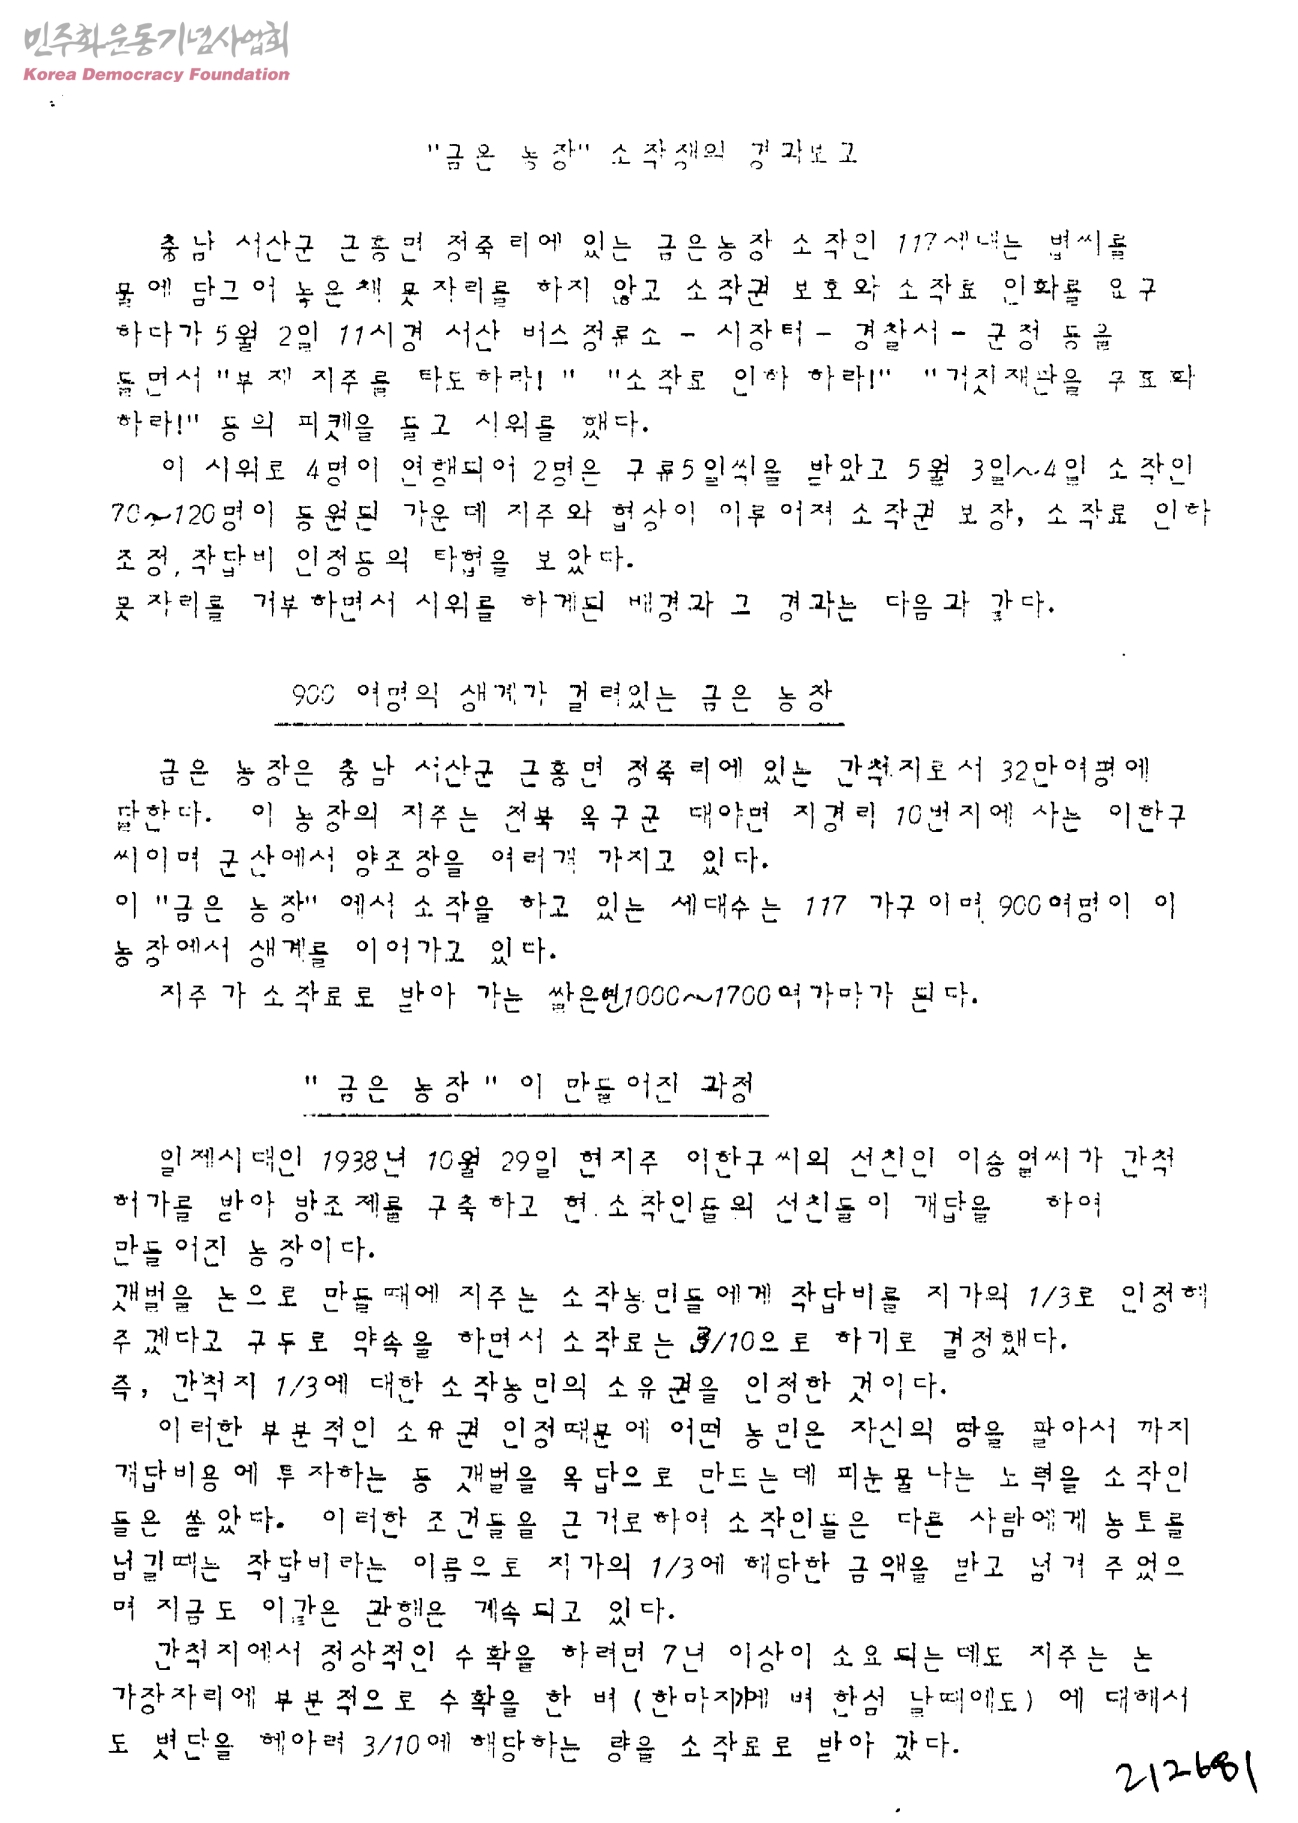 민주화운동기념사업회
Korea Democracy Foundation
"금은 농장" 소작쟁의 경과보고
충남 서산군 근흥면 정죽리에 있는 금은농장 소작인 117세대는 볍씨를
물에 담그어 놓은채 못자리를 하지 않고 소작권 보호와 소작료 인하를 요구
하다가 5월 2일 11시경 서산 버스정류소 - 시장터 - 경찰서 - 군청 등을
돌면서 "부재 지주를 타도하라! " "소작료 인하 하라!" "거짓재판을 무효화
하라!" 등의 피켓을 들고 시위를 했다.
이 시위로 4명이 연행되어 2명은 구류5일씩을 받았고 5월 3일~4일 소작인
70~120명이 동원된 가운데 지주와 협상이 이루어져 소작권 보장, 소작료 인하
조정, 작답비 인정등의 타협을 보았다.
못자리를 거부하면서 시위를 하게된 배경과 그 경과는 다음과 같다.
900 여명의 생계가 걸려있는 금은 농장
금은 농장은 충남 서산군 근흥면 정죽리에 있는 간척지로서 32만여평에
달한다. 이 농장의 지주는 전북 옥구군 대야면 지경리 10번지에 사는 이한구
씨이며 군산에서 양조장을 여러개 가지고 있다.
이 "금은 농장" 에서 소작을 하고 있는 세대수는 117 가구이며 900여명이 이
농장에서 생계를 이어가고 있다.
지주가 소작료로 받아 가는 쌀은연1000~1700여가마가 된다.
" 금은 농장 " 이 만들어진 과정
일제시대인 1938년 10월 29일 현지주 이한구씨의 선친인 이승열씨가 간척
허가를 받아 방조제를 구축하고 현 소작인들의 선친들이 개답을 하여
만들어진 농장이다.
갯벌을 논으로 만들때에 지주는 소작농민들에게 작답비를 지가의 1/3로 인정해
주겠다고 구두로 약속을 하면서 소작료는 3/10으로 하기로 결정했다.
즉, 간척지 1/3에 대한 소작농민의 소유권을 인정한 것이다.
이러한 부분적인 소유권 인정때문에 어떤 농민은 자신의 땅을 팔아서 까지
개답비용에 투자하는 등 갯벌을 옥답으로 만드는데 피눈물나는 노력을 소작인
들은 쏟았다. 이러한 조건들을 근거로하여 소작인들은 다른 사람에게 농토를
넘길때는 작답비라는 이름으로 지가의 1/3에 해당한 금액을 받고 넘겨 주었으
며 지금도 이같은 관행은 계속되고 있다.
간척지에서 정상적인 수확을 하려면 7년 이상이 소요되는데도 지주는 논
가장자리에 부분적으로 수확을 한 벼 (한마지기에 벼 한섬 날때에도) 에 대해서
도 볏단을 헤아려 3/10에 해당하는 량을 소작료로 받아 갔다.
212681